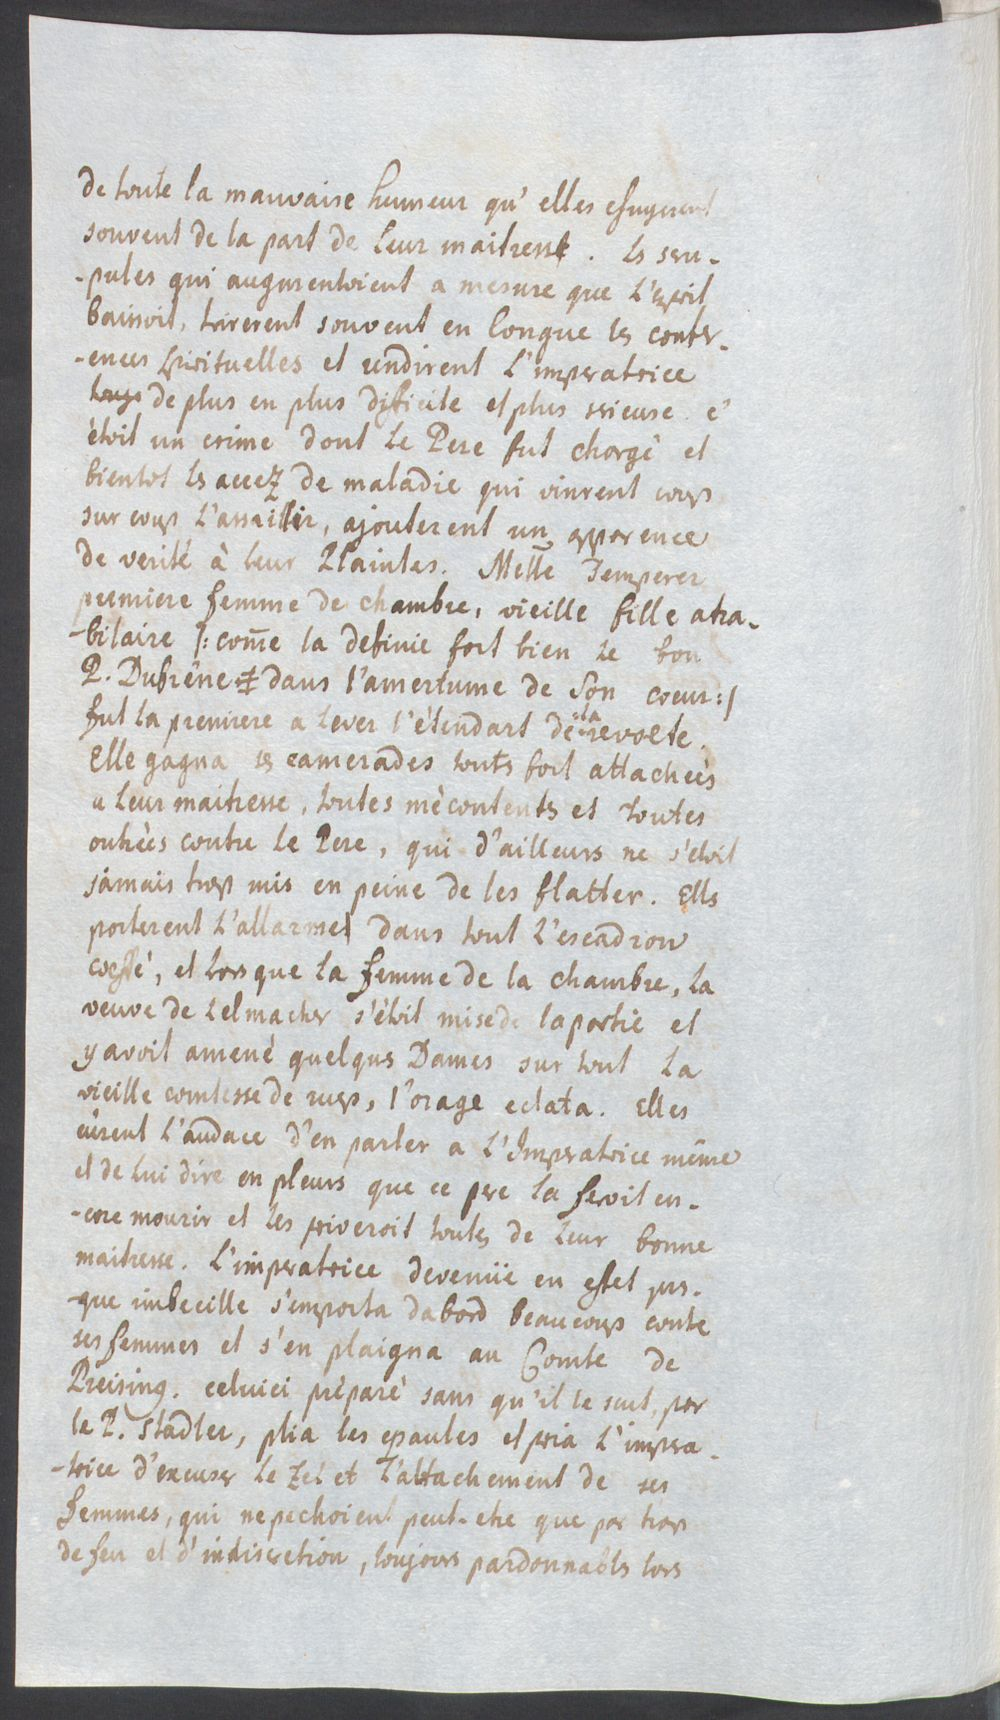 de toute la mauvaise humeur qu' elles essuyerent
souvent de la part de leur maitresse. les scru-
-pules qui augmentoient a mesure que L'esprit
baissoit, tirerent souvent en longue les confer-
-ences spirituelles et rendirent L'imperatrice
de plus en plus dificile et plus serieuse c'
étoit un crime dont le Pere fut chargé et
bientot les accez de maladie qui vinrent coup
sur coup L'assaillir, ajouterent un apparence
de verité à leur Plaintes. Melle Temperer
premiere femme de chambre, vieille fille atra-
-bilaire /: com̄e la definie fort bien le bon
P. Dufrêne dans l'amertume de Son coeur :/
fut la premiere a lever l'étendart de la revolte.
Elle gagna ses camerades touts fort attachées
a leur maitresse, toutes mécontents et toutes
outrées contre le Pere, qui d'ailleurs ne s'étoit
jamais trop mis en peine de les flatter. Elles
porterent L'allarme dans tout L'escadron
coeffé, et lors que la femme de la chambre, la
veuve de Lelmacher s'étoit mise de la partie et
y avoit amené quelques Dames sur tout la
vieille comtesse de rup, l'orage eclata. Elles
eürent L'audace d'en parler a L'Imperatrice même
et de lui dire en pleurs que ce pere la feroit en-
-core mourir et les priveroit toutes de leur bonne
maitresse. L'imperatrice devenüe en effet pres-
-que imbecille s'emporta dabord beaucoup contre
ses femmes et s'en plaigna au Comte de
Preising. celuici préparé sans qu'il le sut, par
le P. Stadler, plia les epaules et pria L'impera-
-trice d'excuser le zel et l'attachement de ses
femmes, qui ne pechoient peut-etre que par trop
de feu et d'indiscretion, toujours pardonnables lors